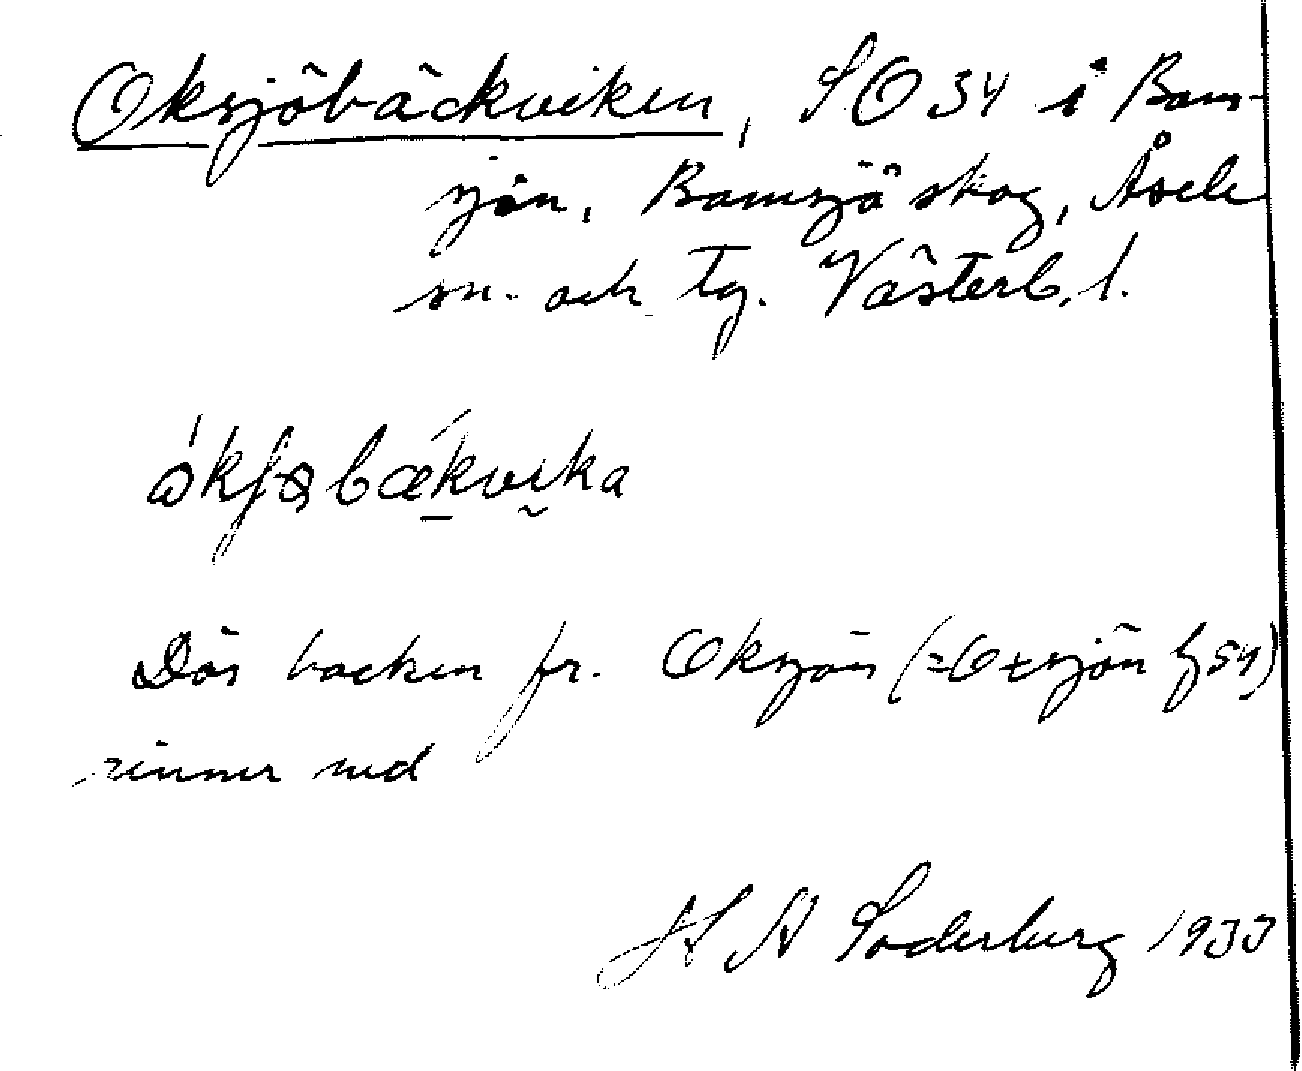 Oksjöbäckviken, SO 34 i Bam-
sjön, Bamsjö skog, Åsele
sn. och tg. Västerb. l.
Där backen fr. Oksjön (=Oxsjön f 54)
rinner ned
H A Söderberg 1933